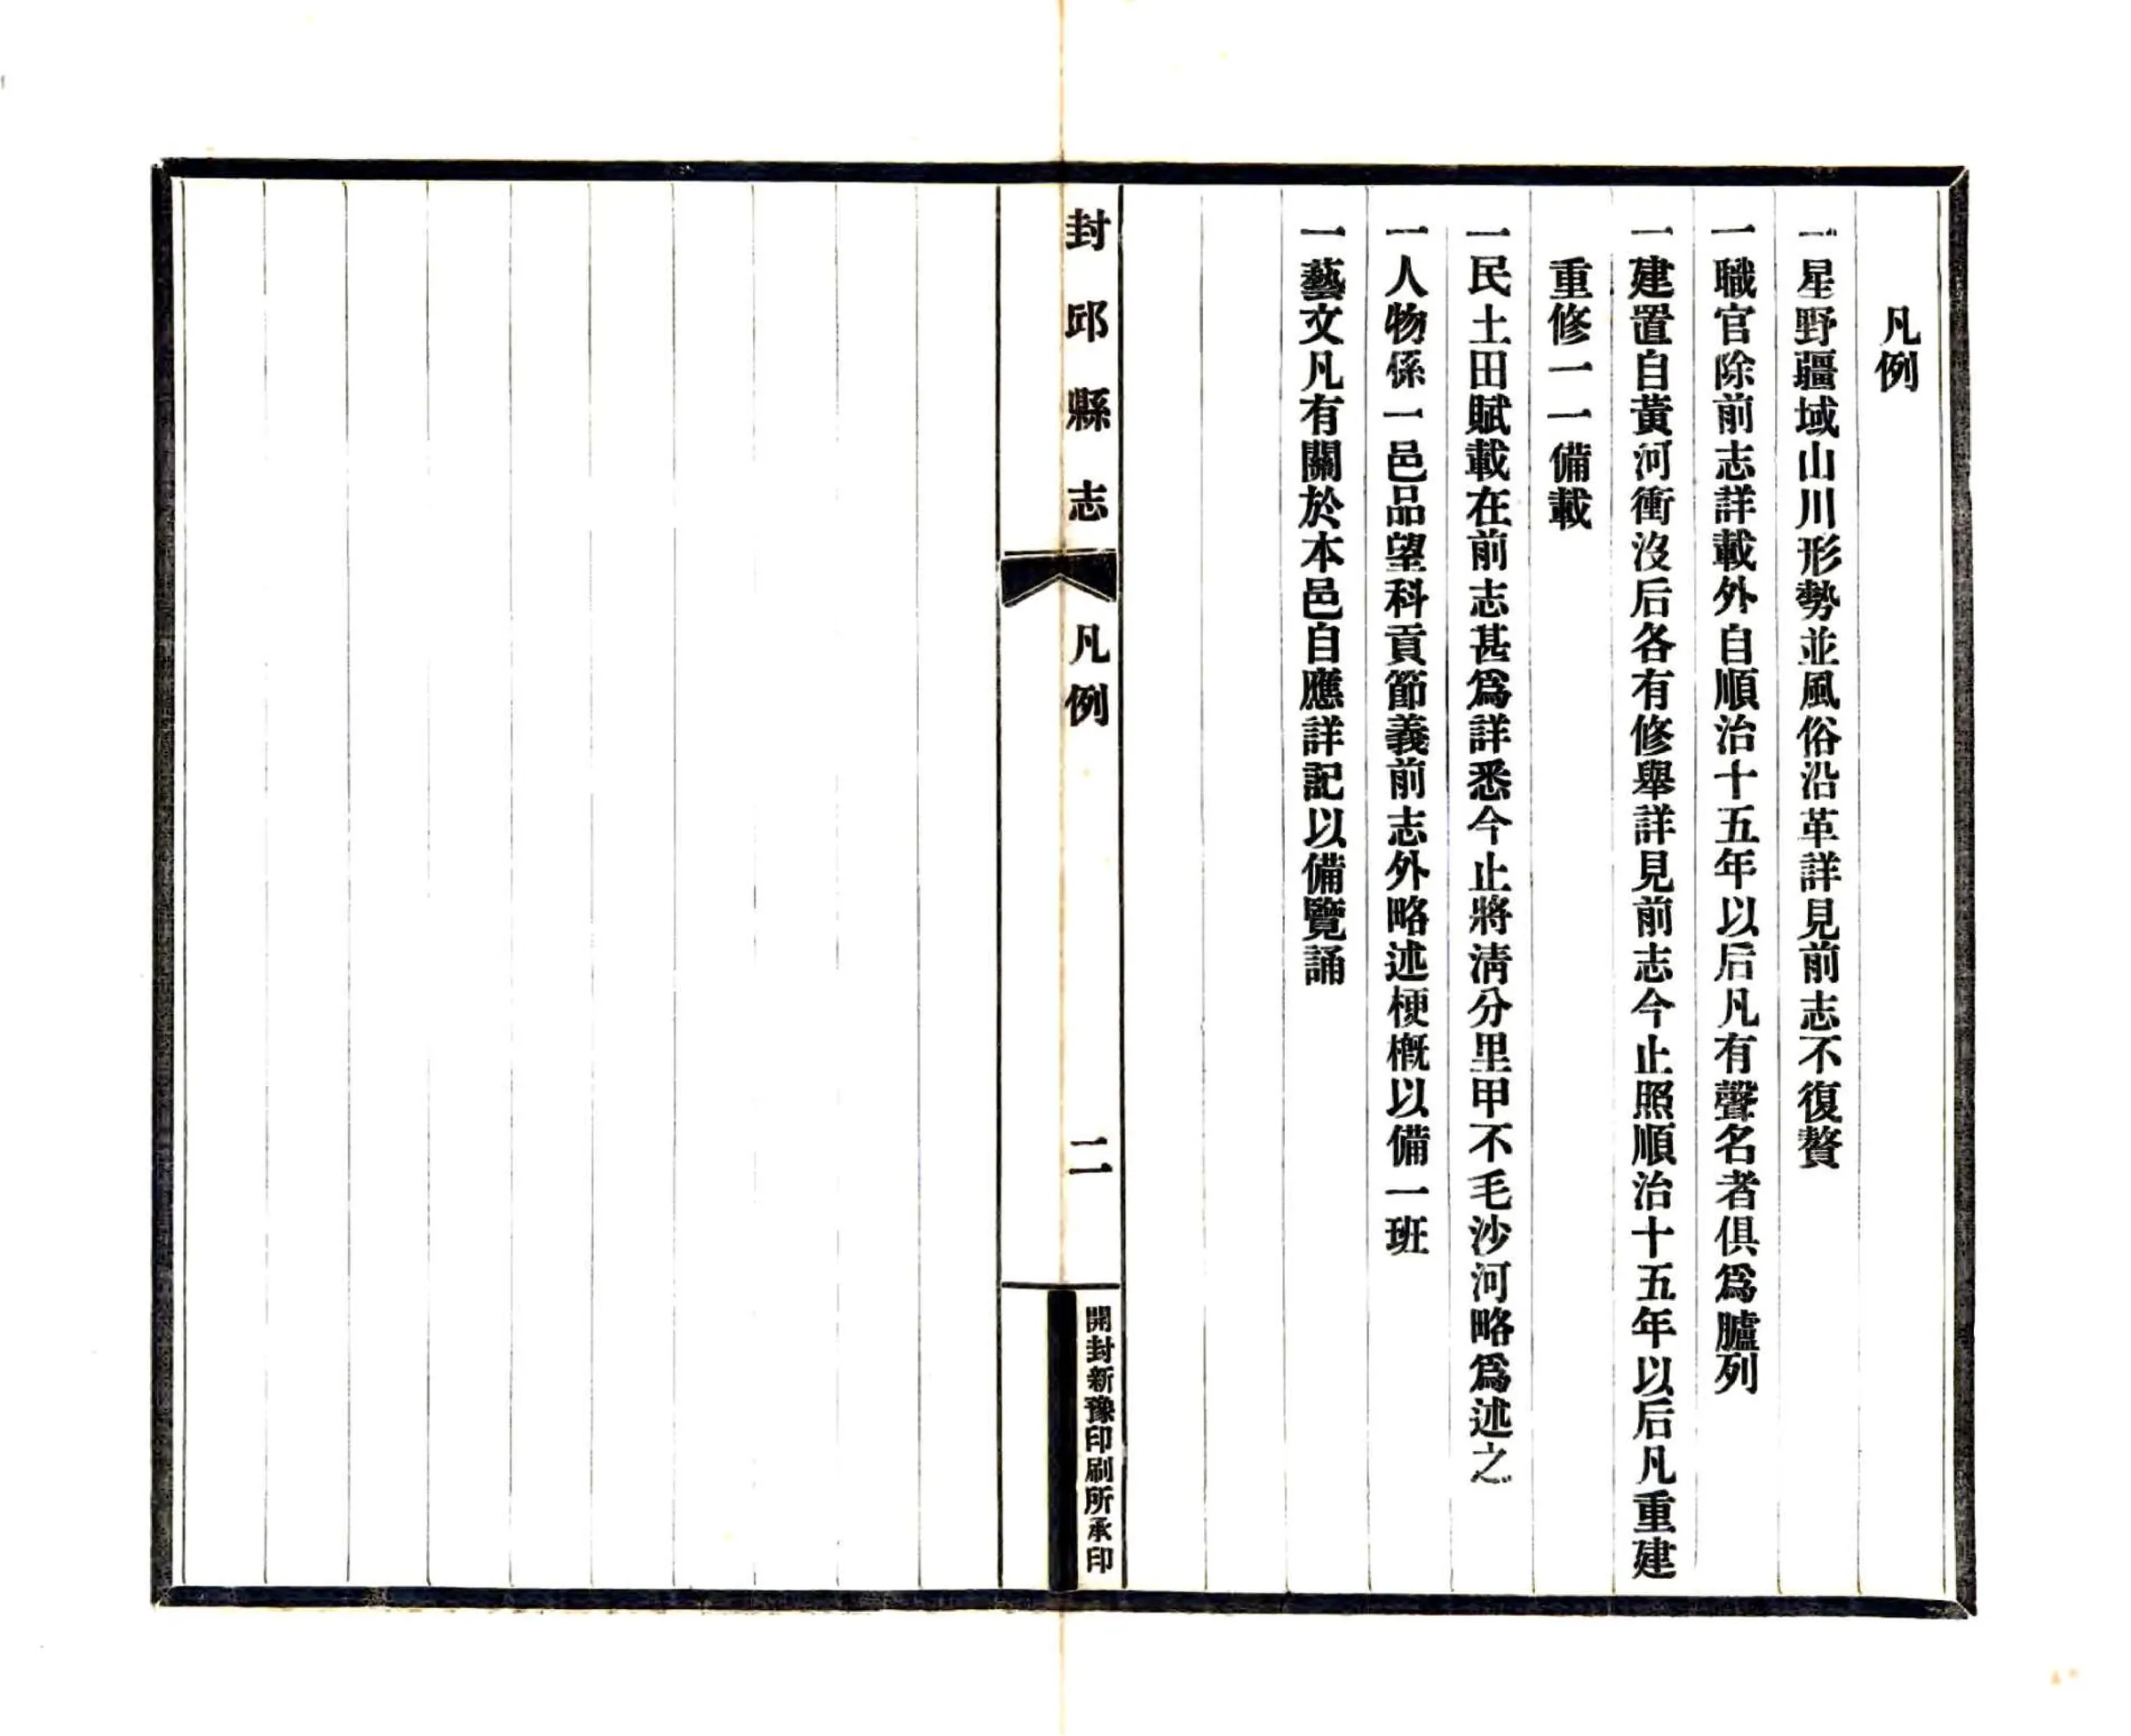 凡例
一星野疆域山川形勢並風俗沿革詳見前志不復贅
一職官除前志詳載外自順治十五年以后凡有聲名者俱爲臚列
一建置自黃河衝沒后各有修舉詳見前志今止照順治十五年以后凡重建
重修一一備載
一民土田賦載在前志甚爲詳悉今止將淸分里甲不毛沙河略爲述之
一人物係一邑品望科貢節義前志外略述梗槪以備一班
一藝文凡有關於本邑自應詳記以備覽誦
封邱縣志
凡例
二
開封新豫印刷所承印